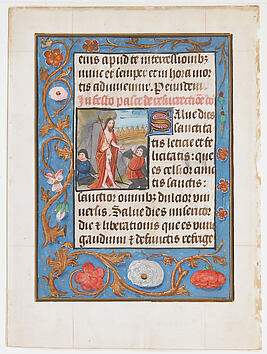 eius apud te intercessionibus
nunc et semper et in hora mor
tis adiuvemur. Per
In festo pasce de resurrectione do
Salve dies
sanctita
tis leticie et fe
licitatis: que
es celsior cunc
tis sanctis:
sanctior omnibus dulcior uni
versis. Salve dies misericor
die et liberationis que es vivis
gaudium et defunctis refrige